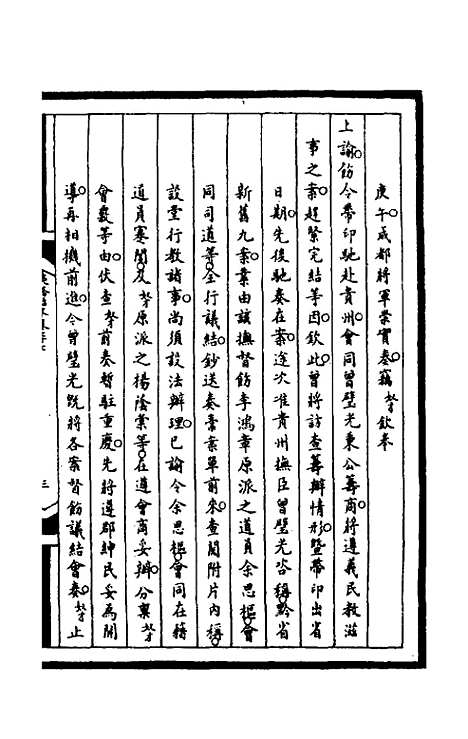 庚午成都將軍崇實奏竊努欽奉
上諭飭令帶印馳赴貴州會同曾璧光秉公籌商將遵義民教滋
事之案趕緊完結等因欽此曾將訪查籌辦情形暨帶印出省
日期先後馳奏在案途次准貴州撫臣曾璧光咨稱黔省
新舊九案業由該撫督飭李鴻章原派之道員余思樞會
同司道等全行議結鈔送奏稾案單前來查閱附片內稱
設堂行教諸事尚須設法辦理已諭令余思樞會同在籍
道員蹇誾及努原派之楊蔭棠等在遵會商妥辦分稟努
會覈等由伏查努前奏暫駐重慶先將遵郡紳民妥為開
導再相機前進今曾璧光既將各案督飭議結會奏努止
三